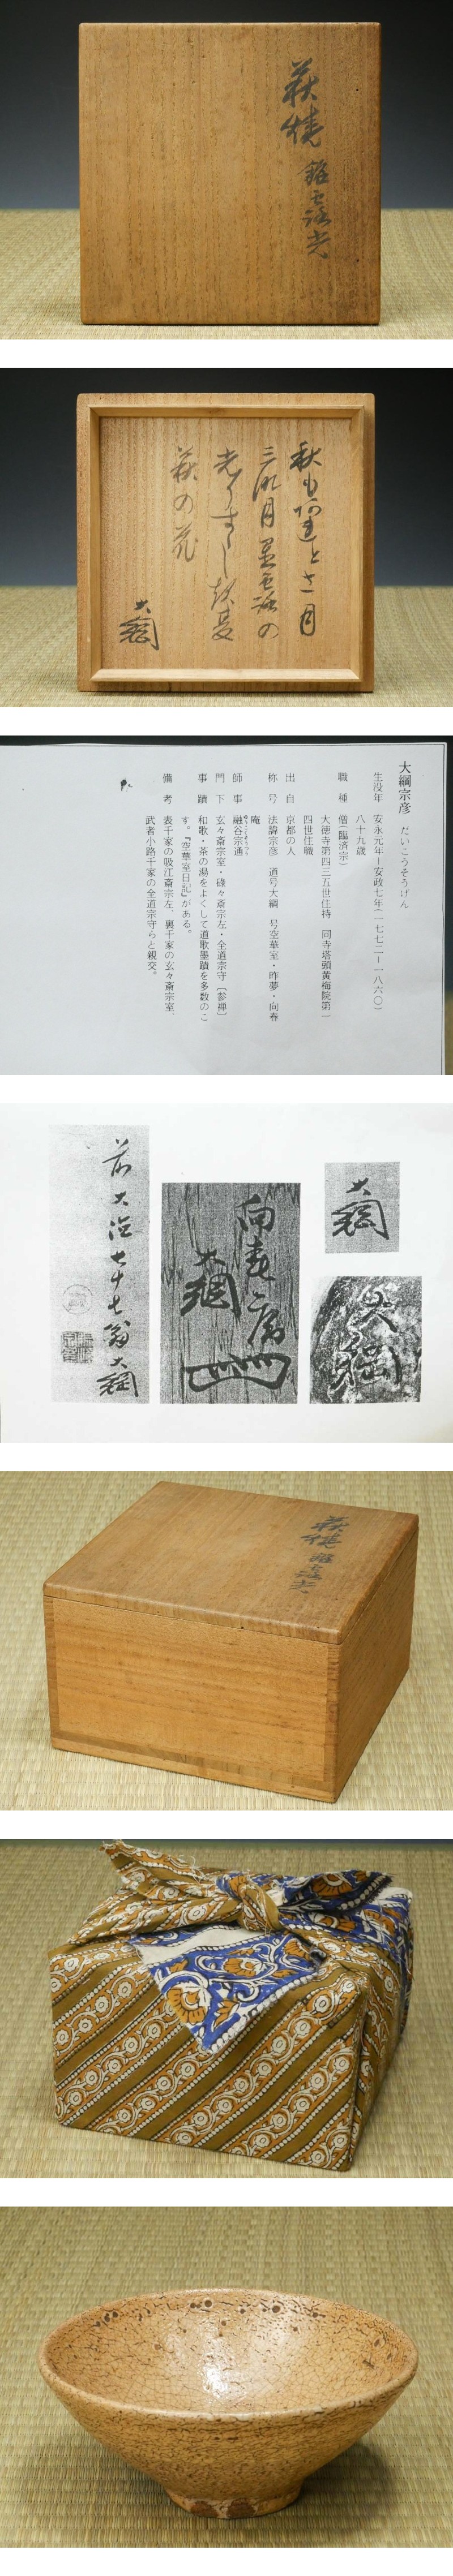 萩焼 銘 玉露光
秋も
三日月
萩の花
大綱
大綱宗彦 だいこうそうげん
生没年 安永元年―安政七年(一七七二―一八六〇)
八十九歳
職種 僧(臨済宗)
大徳寺第四三五世住持 同寺塔頭黄梅院第一
四世住職
出自 京都の人
称号 法諱宗彦 道号大綱 号空華室・昨夢・向春
庵
師事 融谷宗通
門下 玄々斎宗室・碌々斎宗左・全道宗守〔参禅〕
事蹟 和歌・茶の湯をよくして道歌墨蹟を多数のこ
す。『空華室日記』がある。
備考 表千家の吸江斎宗左、裏千家の玄々斎宗室、
武者小路千家の全道宗守らと親交。
大綱
向春庵
大綱
前大徳七十七翁大綱
大綱
萩焼